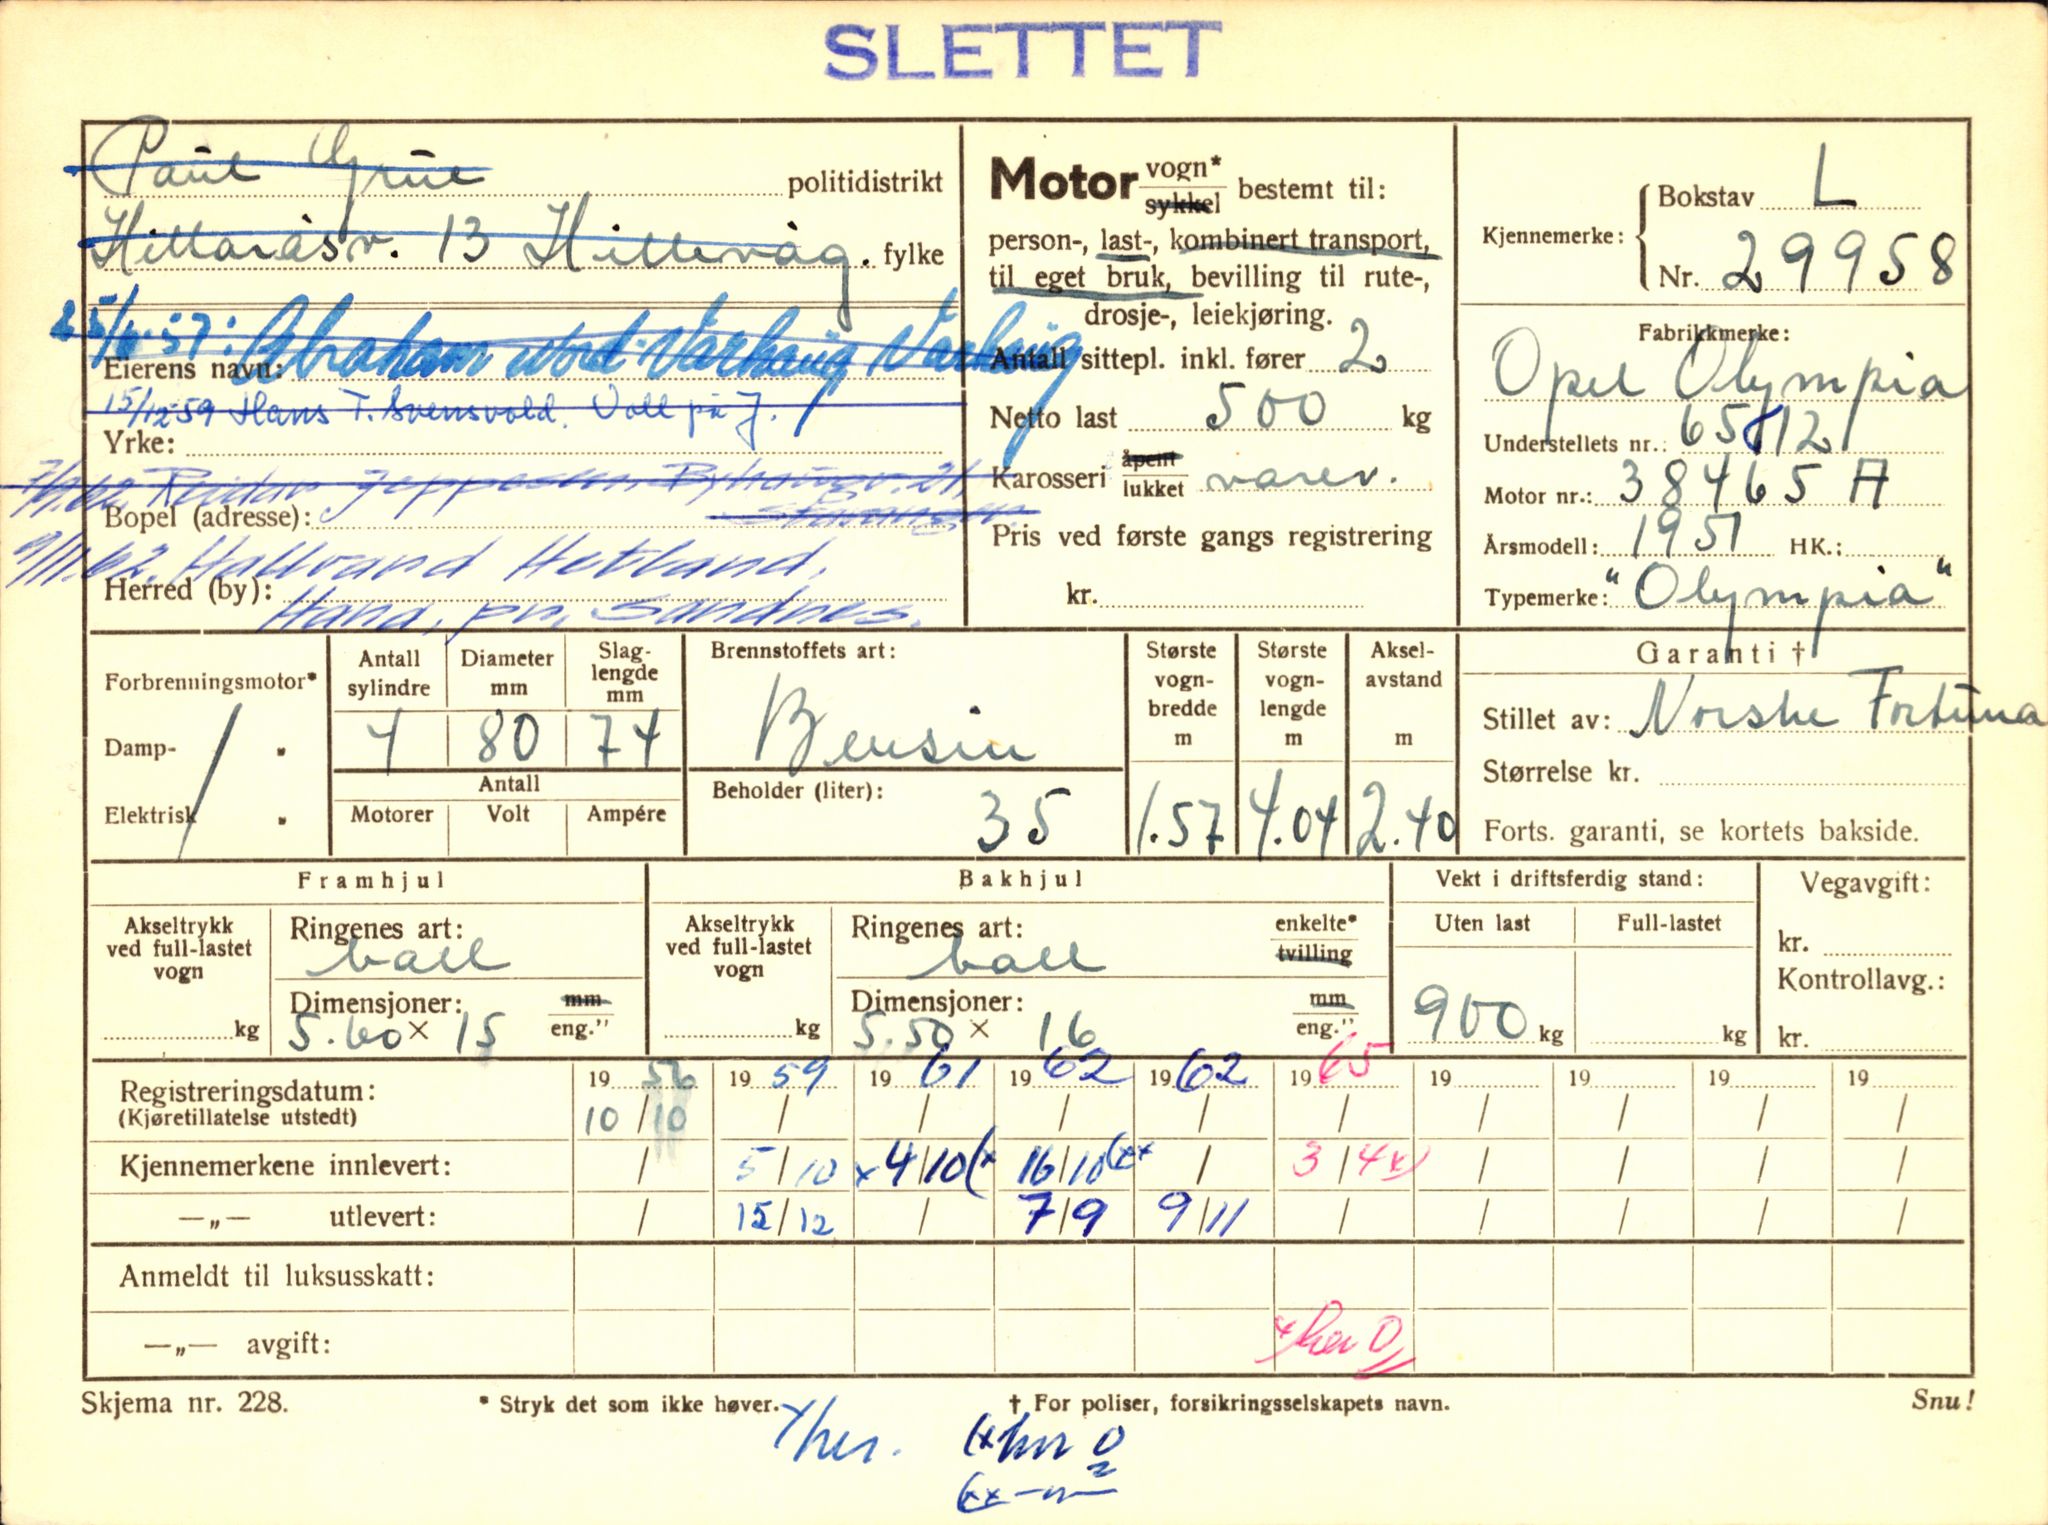 SLETTET
Paul Grue politidistrikt
Hillaråsv. 13 Hillevåg. fylke
25/6-57: Abraham Nord-Varhaug Varhaug
Eierens navn:
15/12 59 Hans T. Svensvold. Voll på J.
Yrke:
7/9.62 Reidar Jeppesen, 21, Stavanger.
Bopel (adresse):
9/11.62. Hallvard Hetland,
Herred (by): Hana, pr. Sandnes.
Motor vogn* sykkel bestemt til:
person-, last-, kombinert transport,
til eget bruk, bevilling til rute-,
drosje-, leiekjøring.
Antall sittepl. inkl. fører 2
Netto last 500 kg
Karosseri åpent lukket varev.
Pris ved første gangs registrering
kr.
Kjennemerke: Bokstav L
Nr. 29958
Fabrikkmerke:
Opel Olympia
Understellets nr.: 65812
Motor nr.: 38465 A
Årsmodell: 1951 HK.:
Typemerke: "Olympia"
Forbrenningsmotor*
Damp- "
Elektrisk "
Antall sylindre Diameter mm Slaglengde mm
4 80 74
Antall
Motorer Volt Ampére
Brennstoffets art:
Bensin
Beholder (liter): 35
Største vogn-bredde m Største vogn-lengde m Aksel-avstand m
1.57 4.04 2.40
Garanti †
Stillet av: Norske Fortuna
Størrelse kr.
Forts. garanti, se kortets bakside.
Framhjul
Akseltrykk ved full-lastet vogn
kg
Ringenes art:
ball
Dimensjoner: mm
5.60 × 15 eng."
Bakhjul
Akseltrykk ved full-lastet vogn
kg
Ringenes art: enkelte*
ball tvilling
Dimensjoner: mm
5.50 × 16 eng."
Vekt i driftsferdig stand:
Uten last Full-lastet
900 kg kg
Vegavgift:
kr.
Kontrollavg.:
kr.
Registreringsdatum: 1956 1959 1961 1962 1962 1965 19 19 19 19
(Kjøretillatelse utstedt) 10/10 / / / / / / / / /
Kjennemerkene innlevert: / 5/10 x4/10(x 16/10(xx / 3/4x) / / / /
—„— utlevert: / 15/12 / 7/9 9/11 / / / / /
Anmeldt til luksusskatt:
—„— avgift: x her 0
Skjema nr. 228. * Stryk det som ikke høver. † For poliser, forsikringsselskapets navn. Snu!
x her. (x her 0
(xx —"—